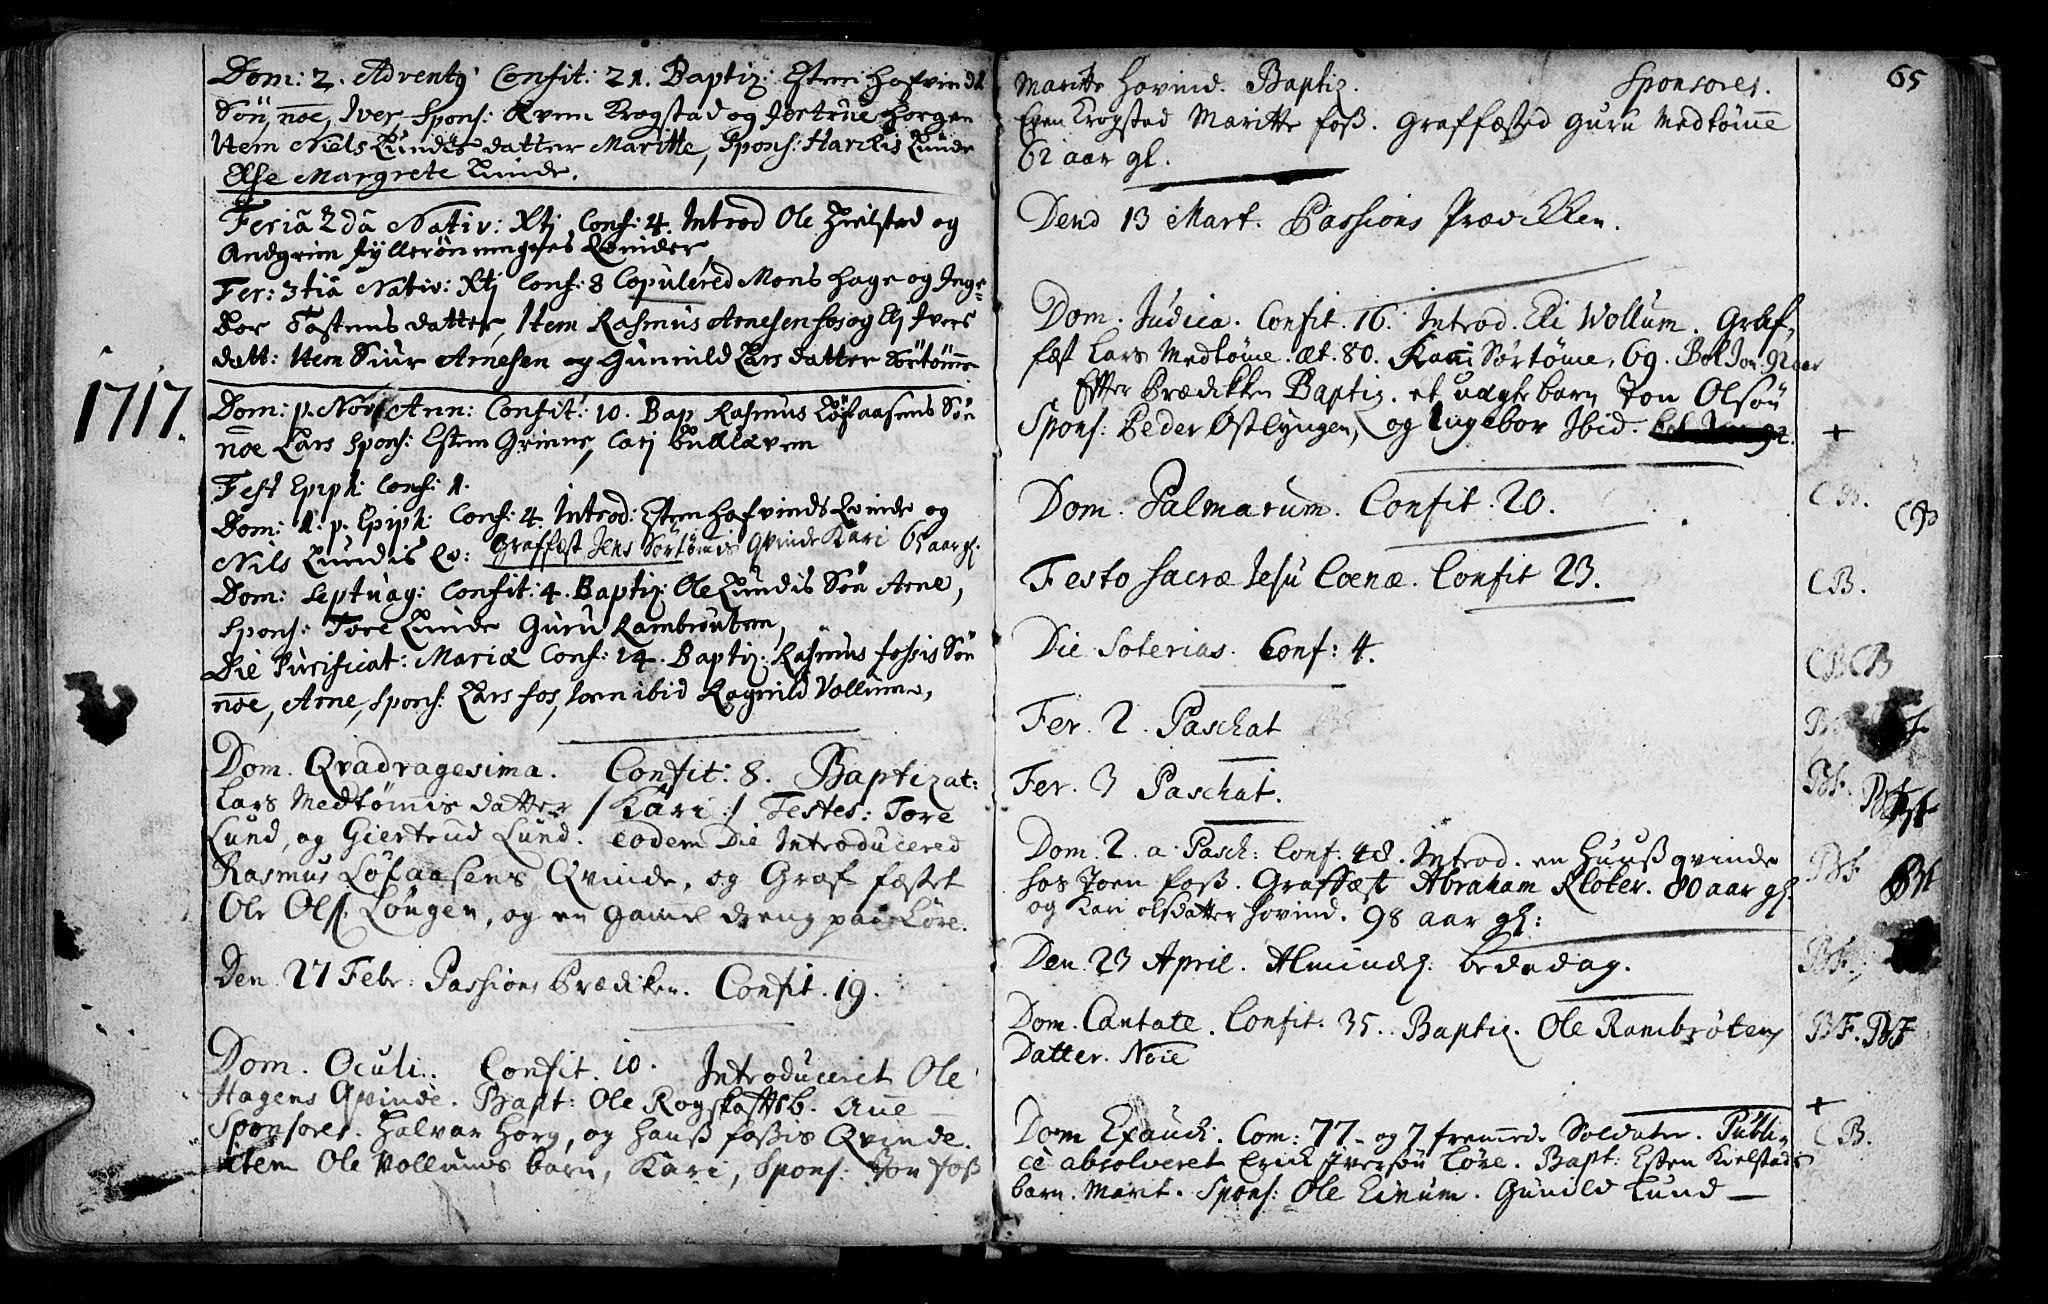 Dom: 2. Advent9 Confit: 21. Baptiz: Esten Hofvinds
Sön, noe, Iver Spons: Even Krogstad og Jertrue Horgen
Item Niels Lundis datter Maritte, Spons: Harelis Lunde
Else Margrete Lunde.
Feria 2da Nativ: Xtj Conf: 4. Introd Ole Kielstad og
Andgrim Fyllerönningnes Qvinder,
Fer: 3tia Nativ: Xtj Conf: 8 Copulered Mons Hage og Inge=
bor Tostensdatter, Item Rasmus Arnesen fos og Elj Ivers
datt: Item Siur Arnesen og Gunnild Larsdatter Sörtömme
1717.
Dom: p. Nov Ann: Confit: 10. Bap Rasmus Löfaasens Sön
noe Lars Spons: Esten Grinne, Carj
Fest Epiph Conf: 1.
Dom: 1. p. Epiph: Conf: 4. Introd: Esten Hofvinds Qvinde og
Nils Lundis Qv: Graffest Jens Sörtömis Qvinde Kari 65 aar gl.
Dom: Septuag: Confit: 4. Baptiz: Ole Lundis Sön Arne,
Spons: Tore Lunde Guru Rambröuten,
Die Purificat: Mariæ Conf: 14. Baptiz: Rasmus fossis Sön
noe, Arne, Spons: Lars fos, Joen ibid Ragnild Vollumr,
Dom. Qvadragesima. Confit: 8. Baptizat:
Lars Medtömis datter /: Kari :/ Testes: Tore
Lund, og Giertrud Lund. eodem Die Introducered
Rasmus Löfaasens Qvinde, og Graf fæstet
Ole Ols. Löngen, og en gamel dreng paa Löre.
Den 27 Febr: Passions Prædiken. Confit. 19.
Dom. Oculi. Confit. 10. Introduceret Ole
Hagens Qvinde. Bapt: Ole Rogskafttsb. Ane
Sponsores. Halvar Horg, og Hanß foßis Qvinde.
item Ole Vollums barn, Kari, Spons: Jon foß
65
Maritte Hovind. Baptiz. Sponsores.
Even Krogstad Maritte foß. Graffæsted Guru Medtömme
62 aar gl.
Dend 13 Mart. Passions Prædikken.
Dom. Judica. Confit. 16. Introd. Eli Wollum. Graf,
fæst Lars Medtöme. æt. 80. Kari Sörtöme, 69. Bol Jon. 92 aar
Efter Prædikken Baptiz. et uægte barn Jon Olsön
Spons: Peder Östlyngen, og Ingebor Ibid. +
Dom. Palmarum. Confit. 20. CB. CB
Festo Sacræ Jesu Coenæ. Confit 23. CB.
Die Soterias. Conf: 4. CB CB
Fer. 2. Paschat
Fer. 3 Paschat. BF.
Dom. 2. a Pasch: Conf. 48. Introd. en Huußqvinde BF
hos Joen foß. Graffæst Abraham Kloker. 80 aar gl.
og Kari olsdatter Hovind. 98 aar gl:
Den 23 April. Almindel. bededag. BF.
Dom. Cantate. Confit. 35. Baptiz. Ole Rambröten BF. BF
Datter. Noie
+
Dom Exaudi. Com: 77. og 7 fremmede Soldater. Publi= CB.
cè absolveret Erick Iversön Löre. Bapt: Esten Kielstads
barn. Marit. Spons: Ole Einum. Gunild Lund —